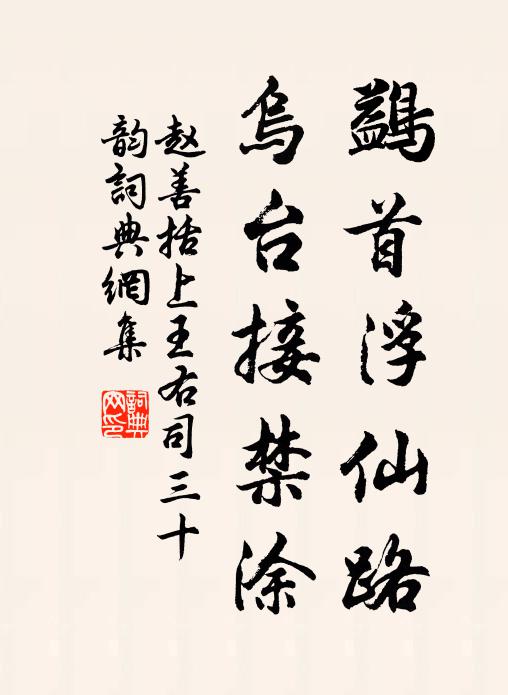 鷁首浮仙路
烏台接禁涂
赵善括上王右司三十
韵詞典網集
詞典网印